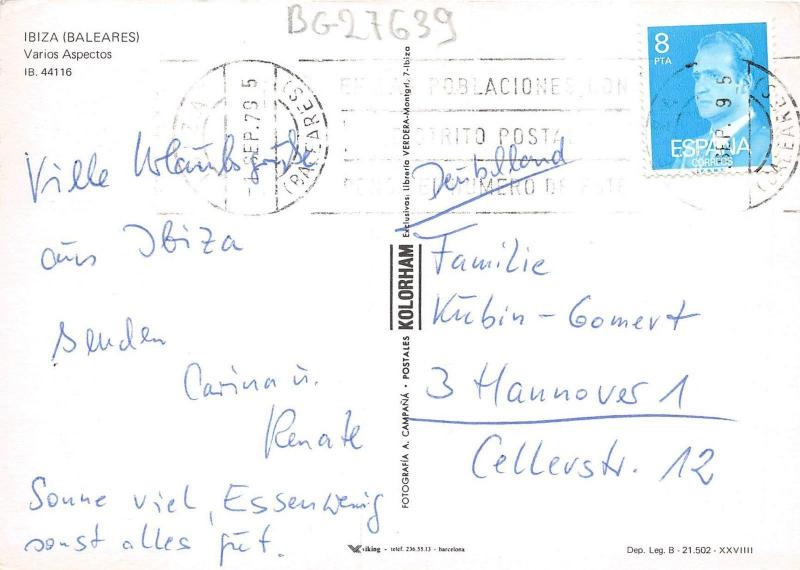 BG-27639
IBIZA (BALEARES)
Varios Aspectos
IB. 44116
SEP. 79 5
(BALEARES)
POBLACIONES CON
DISTRITO POSTAL
NUMERO DE
8
PTA
ESPAÑA
CORREOS
SEP. 9 5
(BALEARES)
Ville Urlaubsgrüße
aus Ibiza
senden
Carina u.
Renate
Sonne viel, Essen wenig
sonst alles gut.
FOTOGRAFÍA A. CAMPAÑÁ • POSTALES KOLORHAM
Exclusivas: Librería VERDERA-Montgrí, 7-Ibiza
Deutschland
Familie
Kübin - Gomert
3 Hannover 1
Cellerstr. 12
viking - telef. 236.55.13 - barcelona
Dep. Leg. B - 21.502 - XXVIIII